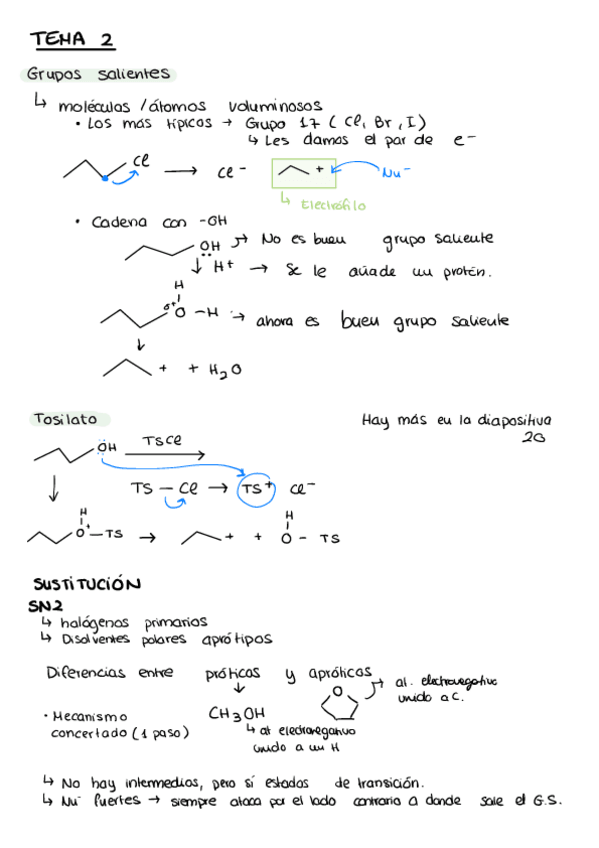 TEMA 2
Grupos salientes
↳ moléculas / átomos voluminosos
• Los más típicos → Grupo 17 (Cl, Br, I)
↳ Les damos el par de e⁻
Cl → Cl⁻ + Nu⁻
↳ Electrófilo
• Cadena con -OH
OH → No es buen grupo saliente
↓ H⁺ → Se le añade un protón.
H
δ⁺O - H → ahora es buen grupo saliente
↓
+ + H₂O
Tosilato
Hay más en la diapositiva 20
OH TSCl →
↓ TS - Cl → TS⁺ Cl⁻
H H
O⁺ - TS → + + O - TS
SUSTITUCIÓN
SN2
↳ halógenos primarios
↳ Disolventes polares aprótipos
Diferencias entre próticos y apróticos
↓ O → at. electronegativo unido a C.
• Mecanismo concertado (1 paso)
CH3OH
↳ at electronegativo unido a un H
↳ No hay intermedios, pero sí estados de transición.
↳ Nu⁻ fuertes → siempre ataca por el lado contrario a donde sale el G.S.